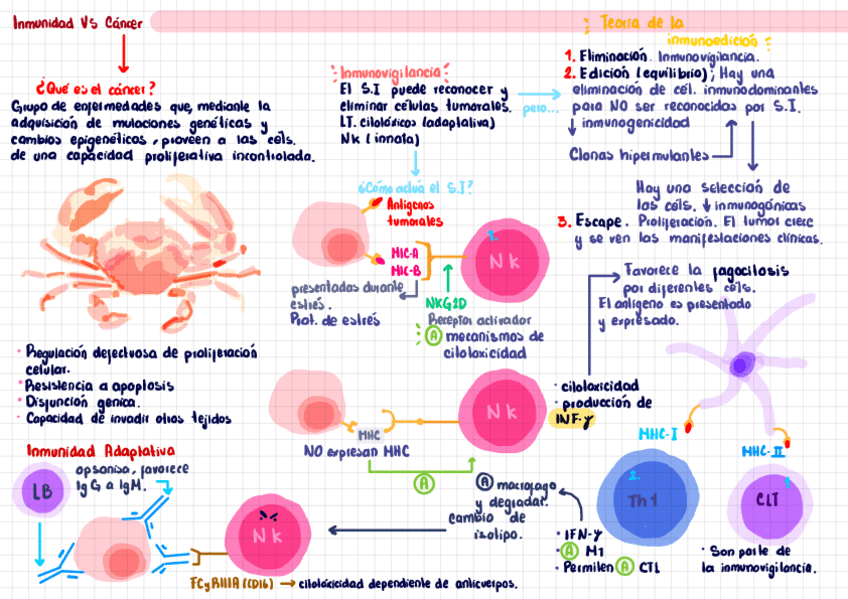 Inmunidad Vs Cáncer
¿Qué es el cáncer?
Grupo de enfermedades que, mediante la
adquisición de mutaciones genéticas y
cambios epigenéticos, proveen a las cels.
de una capacidad proliferativa incontrolada.
· Regulación defectuosa de proliferación
celular.
· Resistencia a apoptosis
· Disfunción génica.
· Capacidad de invadir otros tejidos
Inmunovigilancia
El S.I puede reconocer y
eliminar células tumorales.
LT. citotóxicos (adaptativa)
Nk (innata)
pero...
Teoría de la
inmunoedición
1. Eliminación. Inmunovigilancia.
2. Edición (equilibrio); Hay una
eliminación de cél. inmunodominantes
para NO ser reconocidas por S.I.
↓ inmunogenicidad
Clonas hipermutantes
Hay una selección de
las cels. ↓ inmunogónicas
3. Escape. Proliferación. El tumor crece
y se ven las manifestaciones clínicas.
¿Cómo actúa el S.I?
Antígenos
tumorales
MIC-A
MIC-B
1.
Nk
presentadas durante
estrés.
Prot. de estrés
NKG2D
Receptor activador
A mecanismos de
citotoxicidad
Favorece la fagocitosis
por diferentes céls.
El antígeno es presentado
y expresado.
MHC
NO expresan MHC
A
Nk
· citotoxicidad
· producción de
INF-γ
MHC-I
MHC-II
2.
Th1
CLT
· IFN-γ
· A M1
· Permiten A CTL
· Son parte de
la inmunovigilancia.
A macrófago
y degradar.
cambio de
isotipo.
Inmunidad Adaptativa
LB
opsoniza, favorece
IgG a IgM.
Nk
FCγRIIIA (CD16) → citotoxicidad dependiente de anticuerpos.